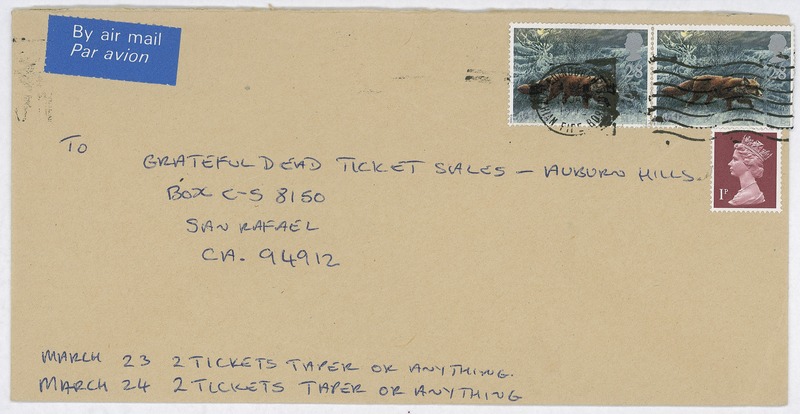 By air mail
Par avion
28
28
1P
TO
GRATEFUL DEAD TICKET SALES - AUBURN HILLS.
BOX C-S 8150
SAN RAFAEL
CA. 94912
MARCH 23 2 TICKETS TAPER OR ANYTHING.
MARCH 24 2 TICKETS TAPER OR ANYTHING